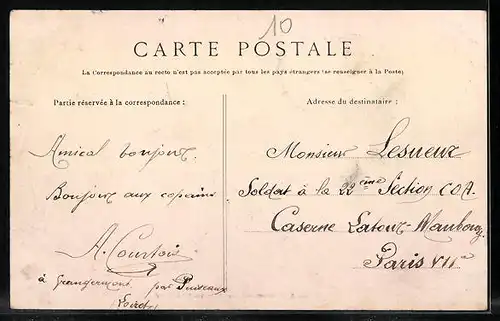 10
CARTE POSTALE
La Correspondance au recto n'est pas acceptée par tous les pays étrangers (se renseigner à la Poste)
Partie réservée à la correspondance :
Adresse du destinataire :
Amical bonjour.
Bonjour aux copains
A. Courtois
à Grangermont par Puiseaux
Loiret
Monsieur Lesueur
Soldat à la 22ème Section COA
Caserne Latour-Maubourg
Paris VIIe